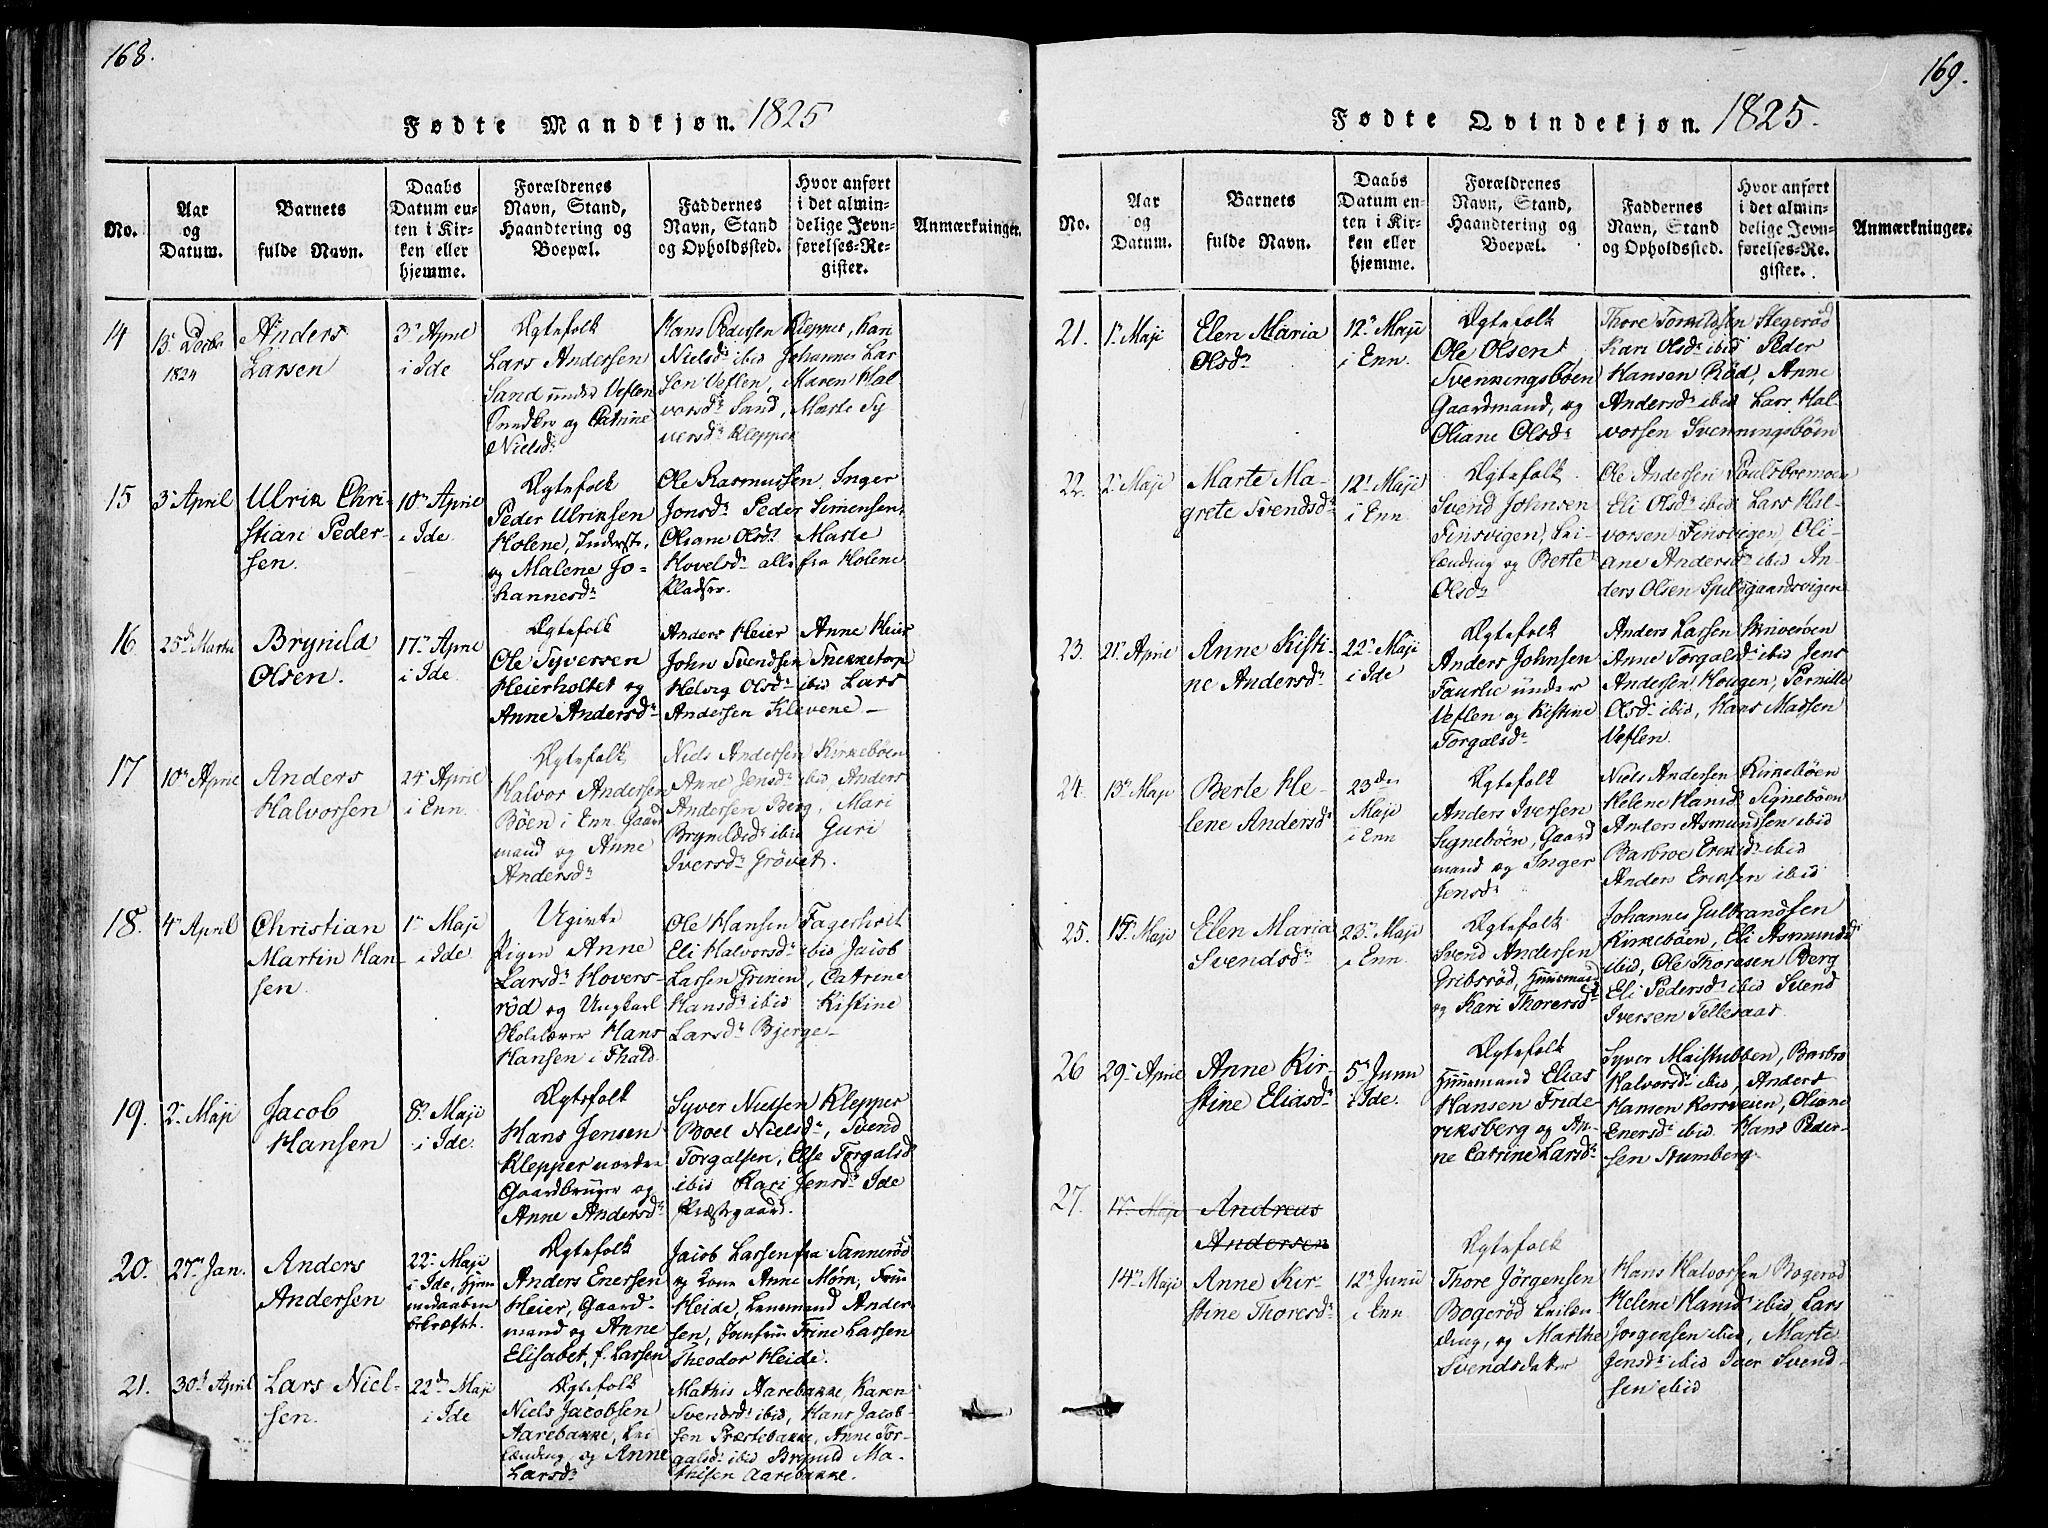 168.
Fødte Mandkjøn. 1825
No.
Aar
og
Datum.
Barnets
fulde Navn.
Daabs
Datum en-
ten i Kir-
ken eller
hjemme.
Forældrenes
Navn, Stand,
Haandtering og
Boepæl.
Faddernes
Navn, Stand
og Opholdssted.
Hvor anført
i det almin-
delige Jevn-
førelses-Re-
gister.
Anmærkninger.
14
13 Decbr
1824
Anders
Larsen
3die April
i Ide
Ægtefolk
Lars Andersen
Sand under Veflen
og Catrine
Nielsd.
Hans Pedersen Klepper, Kari
Nielsd. ibid Johannes Lar
sen Veflen, Maren Hal
vorsd. Sand, Marte Sy
versd. Klepper
15
3 April
Ulrik Chri-
stian Peder-
sen.
10 April
i Ide
Ægtefolk
Peder Ulriksen
Holene, Inderst.
og Malene Jo-
hannesd.
Ole Rasmussen, Inger
Jonsd. Peder Simensen,
Oliane Olsd. Marte
Hovelsd. alle fra Holene
Pladser.
16
25 Marts
Brynild
Olsen.
17 April
i Ide
Ægtefolk
Ole Syversen
Heierholtet og
Anne Andersd.
Anders Heier Anne Heier
John Svendsen Snekketorp
Helvig Olsd. ibid Lars
Andersen Klevene -
17
10 April
Anders
Halvorsen
24 April
i Enn.
Ægtefolk
Halvor Andersen
Böen i Enn Gaard
mand og Anne
Andersd.
Niels Andersen Kirkeböen
Anne Jensd. ibid, Anders
Andersen Berg, Mari
Brynildsd. ibid Guri
Iversd. Grövet.
18.
4 April
Christian
Martin Han-
sen.
1 Maji
i Ide
Ugivte
Pigen Anne
Larsd. Hovers-
röd og Ungkarl
Skolelærer Hans
Hansen i Fhald.
Ole Hansen Fagerholt
Eli Halvorsd. ibid Jacob
Larsen Grinen, Catrine
Hansd. ibid Kistine
Larsd. Bjerge-
19.
2 Maji
Jacob
Hansen
8 Maji
i Ide.
Ægtefolk
Hans Jensen
Klepper nordre
Gaardbruger og
Anne Andersd.
Syver Nielsen Klepper
Boel Nielsd., Svend
Torgalsen, Else Torgalsd
ibid Kari Jensd. Ide
Præstegaard.
20.
27 Jan.
Anders
Andersen
22 Maji
i Ide, hjem
medaaben
bekræftet.
Ægtefolk
Anders Enersen
Heier, Gaard-
mand og Anne
Elisabet, f. Larsen
Jacob Larsen fra Sanneröd
og Kone Anne Mörn, Frue
Heide, Lensmand Ander
sen, Jomfrue Trine Larsen
Theodor Heide.
21.
30 April
Lars Niel-
sen.
22 Maji
i Ide
Ægtefolk
Niels Jacobsen
Aarebakke, Lei
lænding, og Anne
Larsd.
Mathis Aarebakke, Karen
Svendsd. ibid, Hans Jacob-
sen Præstebakke, Anne Tor-
galsd. ibid Brynild Ma-
thisen Aarebakke.
169.
Fødte Qvindekjøn. 1825.
No.
Aar
og
Datum.
Barnets
fulde Navn.
Daabs
Datum en-
ten i Kir-
ken eller
hjemme.
Forældrenes
Navn, Stand,
Haandtering og
Boepæl.
Faddernes
Navn, Stand
og Opholdssted.
Hvor anført
i det almin-
delige Jevn-
førelses-Re-
gister.
Anmærkninger.
21.
1 Maji
Elen Maria
Olsd.
12 Maji
i Enn.
Ægtefolk
Ole Olsen
Svenningsböen
Gaardmand, og
Oliane Olsd.
Thore Torkildsen Stegeröd
Kari Olsd. ibid Peder
Hansen Röd, Anne
Andersd. ibid Lars Hal-
vorsen Svenningsböen
22.
2 Maji
Marte Ma-
grete Svendsd.
12 Maji
i Enn.
Ægtefolk
Svend Johnsen
Finsvigen, Lei-
lænding og Berte
Olsd.
Ole Andersen Poulsbremoen
Eli Olsd. ibid Lars Hal-
vorsen Finsvigen, Oli-
ane Andersd. ibid An-
ders Olsen Spilsgaardsvigen
23.
21 April
Anne Kisti-
ne Andersd.
22 Maji
i Ide
Ægtefolk
Anders Johnsen
Faurlie under
Veflen og Kistine
Torgalsd.
Anders Larsen Skriveröen
Anne Torgalsd. ibid Jens
Andersen Hougen, Pernille
Olsd. ibid, Hans Madsen
Veflen.
24.
13 Maji
Berte He-
lene Andersd.
23den
Maji
i Enn
Ægtefolk
Anders Iversen
Signeböen, Gaard
mand og Inger
Jensd.
Niels Andersen Kirkeböen
Helene Hansd. Signeböen
Anders Asmundsen ibid
Barbroe Eriksd. ibid
Anders Eriksen ibid
25.
15 Maji
Elen Maria
Svendsd.
23 Maji
i Enn.
Ægtefolk
Svend Andersen
Gribsröd, Huusmand
og Kari Thoresd.
Johannes Gulbrandsen
Kirkeböen, Eli Asmundsd.
ibid, Ole Thoresen Berg
Eli Pedersd. ibid Svend
Iversen Tellesaas
26
29 April
Anne Kir-
stine Eliasd.
5 Junii
i Ide.
Ægtefolk
Huusmand Elias
Hansen Fride
riksberg og An-
ne Catrine Larsd.
Syver Maistubben, Barbro
Halvorsd. ibid, Anders
Hansen Korsveien, Oliane
Enersd. ibid Hans Peder-
sen Stumberg.
27.
17 Maji
Andreas
Andersen
14 Maji
Anne Kir-
stine Thoresd.
12 Junii
i Enn
Ægtefolk
Thore Jörgensen
Bogeröd Leilæn
ding, og Marthe
Svendsdatter
Hans Halvorsen Bogeröd
Helene Hansd. ibid Lars
Jorgensen ibid, Marte
Jensd. ibid Iver Svend-
sen ibid